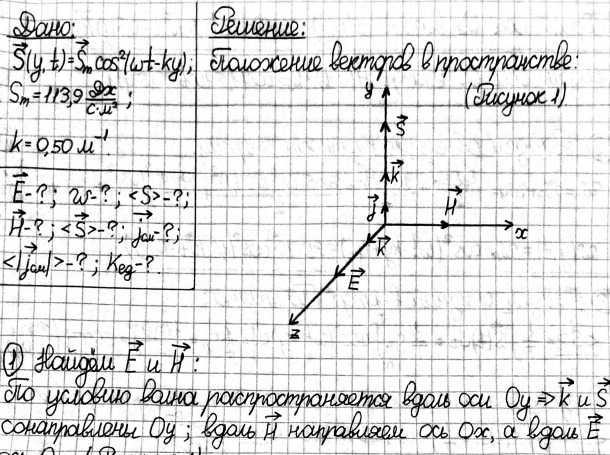 Дано:
S⃗(y,t)=S⃗m cos²(ωt-ky);
Sm=113,9 Дж/с·м²;
k=0,50 м⁻¹
E⃗-?; w-?; <S>-?;
H⃗-?; <S⃗>-?; j⃗см-?;
<|j⃗см|>-?; Kед-?
Решение:
Положение векторов в пространстве:
(Рисунок 1)
y
S⃗
k⃗
j⃗
H⃗
x
k⃗
E⃗
z
① Найдём E⃗ и H⃗:
По условию волна распространяется вдоль оси Oy ⇒ k⃗ и S⃗
сонаправлены Oy; вдоль H⃗ направляем ось Ox, а вдоль E⃗